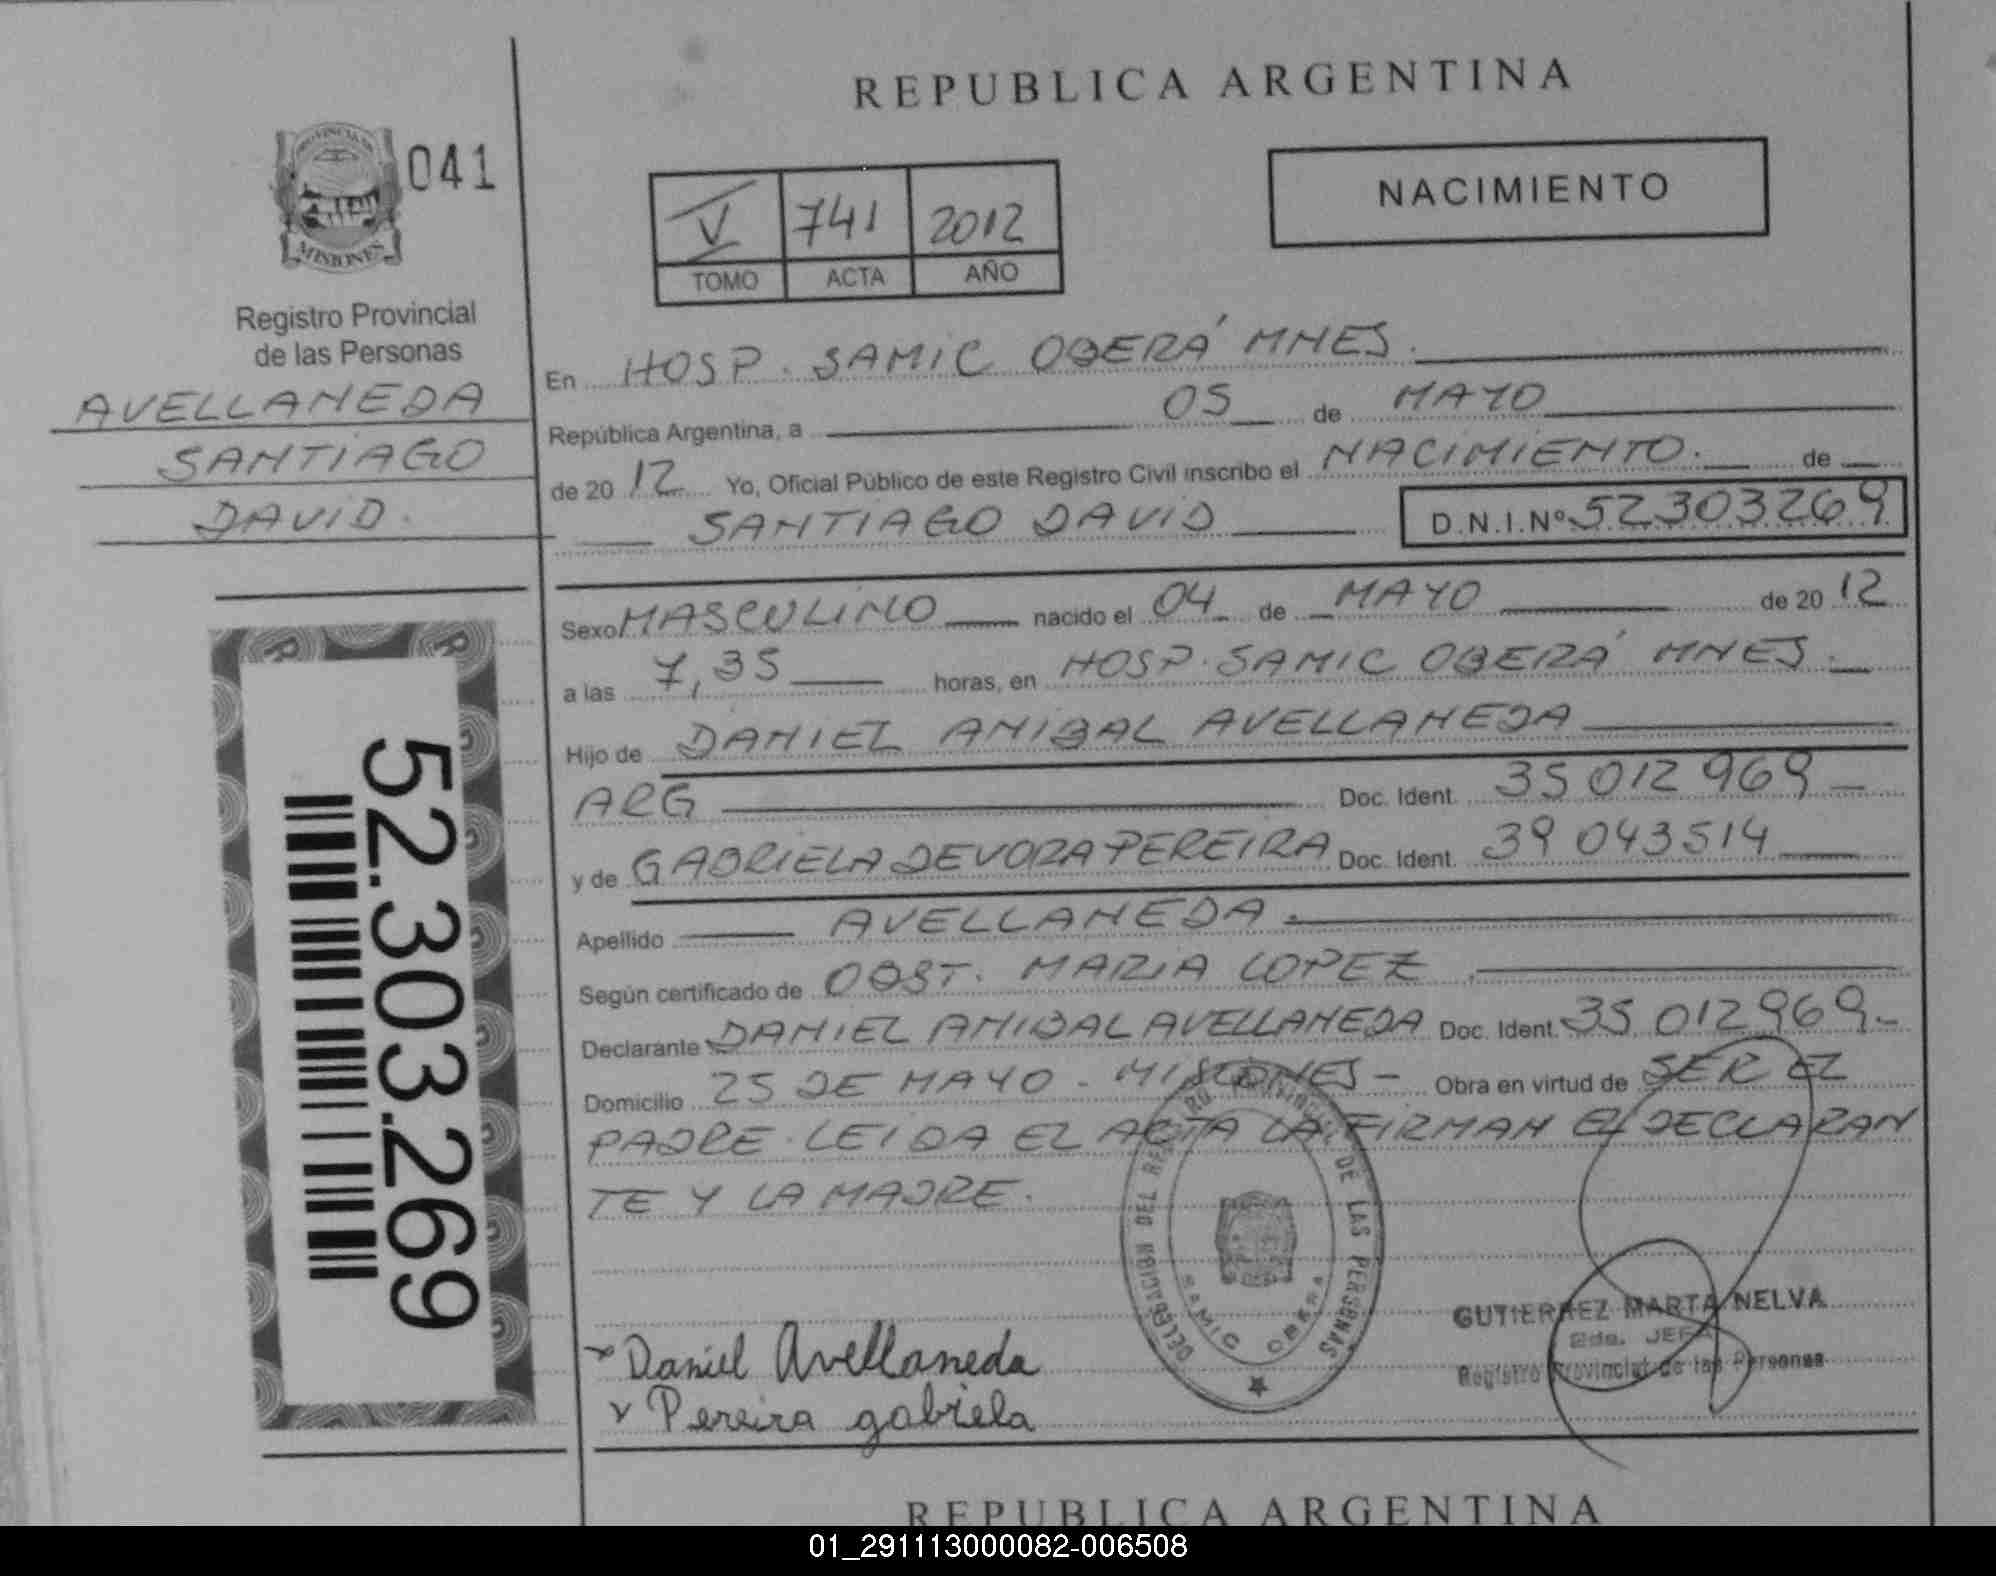 REPUBLICA ARGENTINA
PROVINCIA DE
MISIONES
041
NACIMIENTO
V 741 2012
TOMO ACTA AÑO
Registro Provincial
de las Personas
AVELLANEDA
SANTIAGO
DAVID.
En HOSP. SAMIC OBERÁ MNES.
República Argentina, a 05 de MAYO
de 2012 Yo, Oficial Público de este Registro Civil inscribo el NACIMIENTO. de
SANTIAGO DAVID D.N.I.Nº 52303269
Sexo MASCULINO nacido el 04 de MAYO de 2012
a las 7,35 horas, en HOSP. SAMIC OBERÁ MNES.
Hijo de DANIEL ANIBAL AVELLANEDA
ARG Doc. Ident. 35 012 969
y de GABRIELA DEVORA PEREIRA Doc. Ident. 39 043514
Apellido AVELLANEDA.
Según certificado de OBST. MARIA LOPEZ.
Declarante DANIEL ANIBAL AVELLANEDA Doc. Ident. 35 012969.
Domicilio 25 DE MAYO - MISIONES - Obra en virtud de SER EL
PADRE. LEIDA EL ACTA LA FIRMAN EL DECLARAN
TE Y LA MADRE.
52.303.269
DELEGACION DEL REGISTRO PROVINCIAL DE LAS PERSONAS
SAMIC OBERA
GUTIERREZ MARTA NELVA
2da. JEFA
Registro Provincial de las Personas
Daniel Avellaneda
Pereira gabriela
REPUBLICA ARGENTINA
01_291113000082-006508